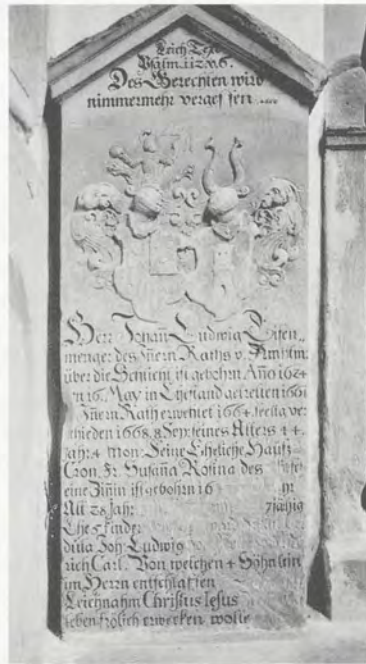 Leich Text
Psalm. 112. v. 6.
Des Gerechten wird
nimmermehr vergessen
Herr Johañ Ludwig Eisen,,
menger des Iñern Raths v. Amptm:
über die Schlicht ist gebohrn Año 1624
n 16. May in Ehestand getretten 1661
Iñern Rath erwehlet 1664. seelig ver
schieden 1668. 8 Sept seines Alters 44.
Jahr. 4 Mon. Seine Eheliche Hauß
Cron. Fr. Susaña Rosina des
eine ist gebohrn 16
Alt 28 Jahr. 7jährig
Ehe 5 Kinder
dina Joh. Ludwig
rich Carl. Von welchen 4 Söhnlein
im Herrn entschlaffen
Leichnahm Christus Iesus
leben frölich erwecken wolle